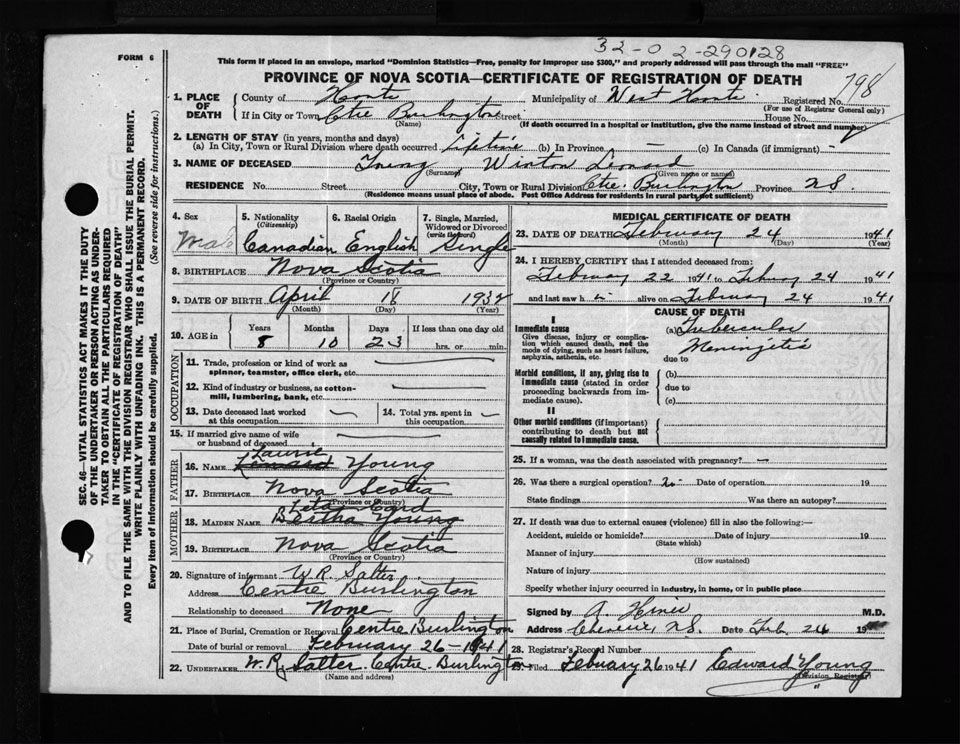 32-0 2-290128
FORM 6
This form if placed in an envelope, marked "Dominion Statistics—Free, penalty for improper use $300," and properly addressed will pass through the mail "FREE"
PROVINCE OF NOVA SCOTIA—CERTIFICATE OF REGISTRATION OF DEATH
798
1. PLACE OF DEATH County of Hants Municipality of West Hants Registered No.
(For use of Registrar General only)
If in City or Town Ctre Burlington Street House No.
(Name) (If death occurred in a hospital or institution, give the name instead of street and number)
2. LENGTH OF STAY (in years, months and days)
(a) In City, Town or Rural Division where death occurred Lifetime (b) In Province — (c) In Canada (if immigrant) —
3. NAME OF DECEASED Young Winton Leonard
(Surname) (Given name or names)
RESIDENCE No. Street City, Town or Rural Division Ctre. Burlington Province N.S.
(Residence means usual place of abode. Post Office Address for residents in rural parts not sufficient)
SEC. 46—VITAL STATISTICS ACT MAKES IT THE DUTY
OF THE UNDERTAKER OR PERSON ACTING AS UNDERTAKER TO OBTAIN ALL THE PARTICULARS REQUIRED
IN THE "CERTIFICATE OF REGISTRATION OF DEATH"
AND TO FILE THE SAME WITH THE DIVISION REGISTRAR WHO SHALL ISSUE THE BURIAL PERMIT.
WRITE PLAINLY WITH UNFADING INK. THIS IS A PERMANENT RECORD.
Every item of information should be carefully supplied. (See reverse side for instructions.)
4. Sex Male
5. Nationality (Citizenship) Canadian
6. Racial Origin English
7. Single, Married, Widowed or Divorced (write the word) Single
8. BIRTHPLACE Nova Scotia
(Province or Country)
9. DATE OF BIRTH April 18 1932
(Month) (Day) (Year)
10. AGE in Years Months Days If less than one day old
8 10 23 hrs. or min.
OCCUPATION
11. Trade, profession or kind of work as spinner, teamster, office clerk, etc.
12. Kind of industry or business, as cotton-mill, lumbering, bank, etc.
13. Date deceased last worked at this occupation —
14. Total yrs. spent in this occupation —
15. If married give name of wife or husband of deceased
FATHER
Laurie
16. NAME Leonard Young
17. BIRTHPLACE Nova Scotia
(Province or Country)
MOTHER
Leta Card
18. MAIDEN NAME Bertha Young
19. BIRTHPLACE Nova Scotia
(Province or Country)
20. Signature of informant W.R. Salter
Address Centre Burlington
Relationship to deceased None
21. Place of Burial, Cremation or Removal Centre Burlington
Date of burial or removal February 26-1941
22. UNDERTAKER W.R. Salter Centre Burlington
(Name and address)
MEDICAL CERTIFICATE OF DEATH
23. DATE OF DEATH February 24 1941
(Month) (Day) (Year)
24. I HEREBY CERTIFY that I attended deceased from:
February 22 1941 to February 24 1941
and last saw h im alive on February 24 1941
CAUSE OF DEATH
I
Immediate cause
Give disease, injury or complication which caused death, not the mode of dying, such as heart failure, asphyxia, asthenia, etc.
(a) Tubercular
Meningitis
due to
Morbid conditions, if any, giving rise to immediate cause (stated in order proceeding backwards from immediate cause).
(b)
due to
(c)
II
Other morbid conditions (if important) contributing to death but not causally related to immediate cause.
25. If a woman, was the death associated with pregnancy? —
26. Was there a surgical operation? no Date of operation 19
State findings Was there an autopsy?
27. If death was due to external causes (violence) fill in also the following:—
Accident, suicide or homicide? Date of injury 19
(State which)
Manner of injury
(How sustained)
Nature of injury
Specify whether injury occurred in industry, in home, or in public place
Signed by A M.D.
Address N.S. Date Feb. 24 19
28. Registrar's Record Number
Filed February 26 1941 Edward Young
(Division Registrar)